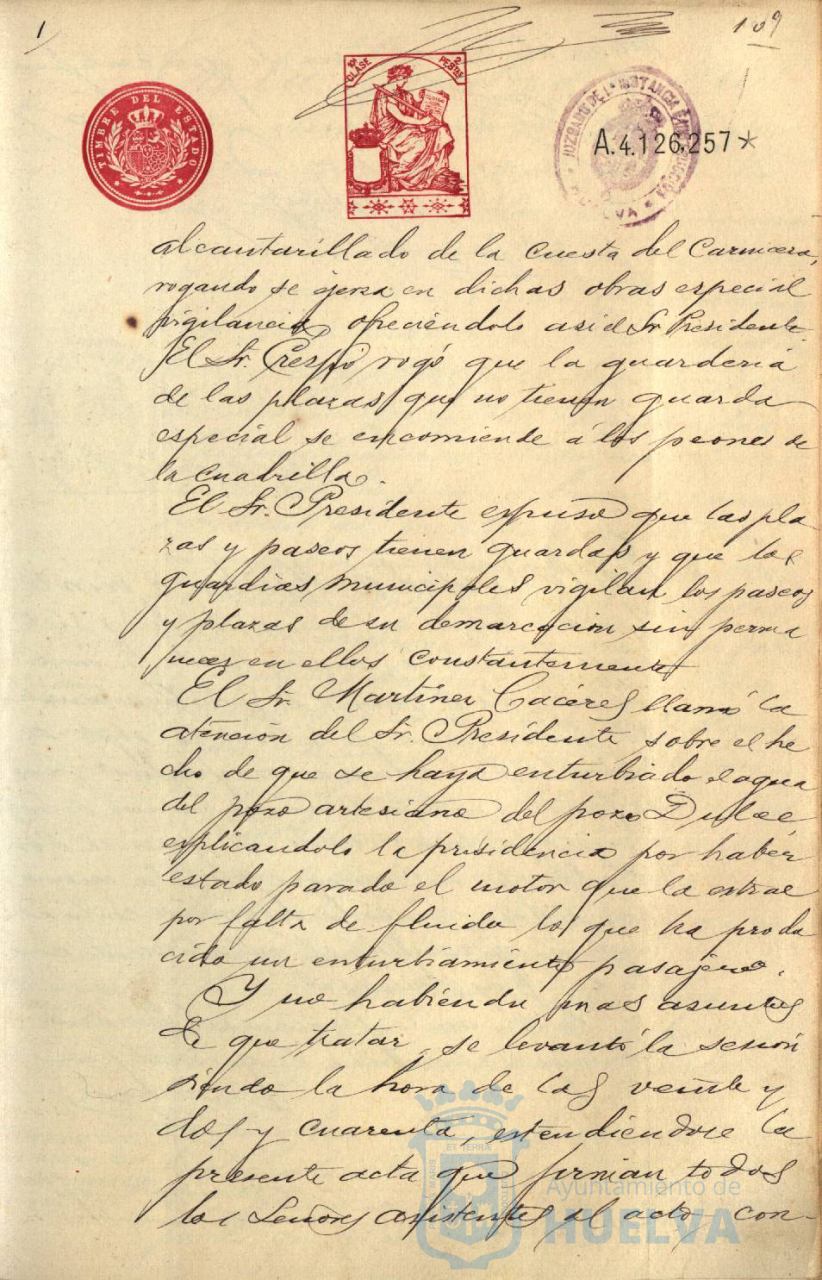 1
109
TIMBRE DEL ESTADO
10ª CLASE 2 PESETAS
JUZGADO DE 1ª INSTANCIA E INSTRUCCION
HUELVA
A.4.126,257*
alcantarillado de la Cuesta del Carnicero,
rogando se ejerza en dichas obras especial
vigilancia, ofreciéndolo asi el Sr. Presidente.
El Sr. Crespo rogó que la guarderia
de las plazas que no tienen guarda
especial se encomiende á los peones de
la cuadrilla.
El Sr. Presidente espuso que las pla
zas y paseos tienen guardas y que los
guardias municipales vigilan los paseos
y plazas de su demarcacion sin perma
necer en ellos constantemente
El Sr. Martinez Cáceres llamó la
atención del Sr. Presidente sobre el he
cho de que se haya enturbiado el agua
del pozo artesiano del pozo Dulce
esplicandolo la présidencia por haber
estado parado el motor que la estrae
por falta de fluido lo que ha produ
cido un enturbiamiento pasajero.
Y no habiendo mas asuntos
de que tratar, se levantó la sesión
siendo la hora de las veinte y
dos y cuarenta, estendiendose la
presente acta que firman todos
los Señores asistentes al acto, con-
ET TERRA
Ayuntamiento de
HUELVA